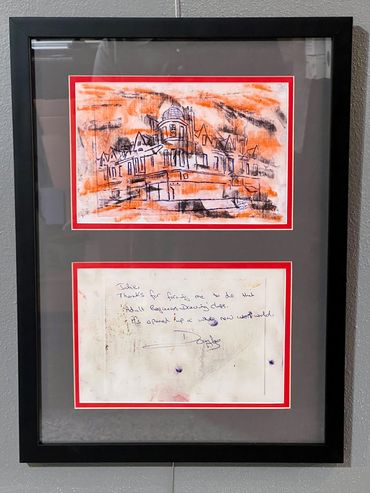 Julie.
Thanks for forcing me to do that
'Adult Beginners Drawing' class.
It's opened up a whole new world.
Douglas